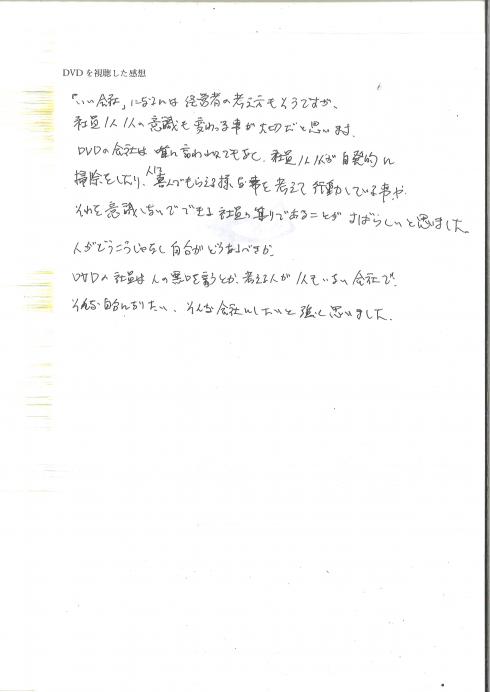 DVDを視聴した感想
「いい会社」になるには経営者の考え方もそうですが、
社員1人1人の意識も変わる事が大切だと思います。
DVDの会社は 誰に言われるでもなく、社員1人1人が自発的に
掃除をしたり、人に喜んでもらえる様な事を考えて行動している事や
それを意識しないでできる社員の集りであることがすばらしいと思いました
人がどうこうじゃなく自分がどうすべきか。
DVDの社員は人の悪口を言うとか、考える人が1人もいない会社で、
そんな自分になりたい、そんな会社にしたいと強く思いました。